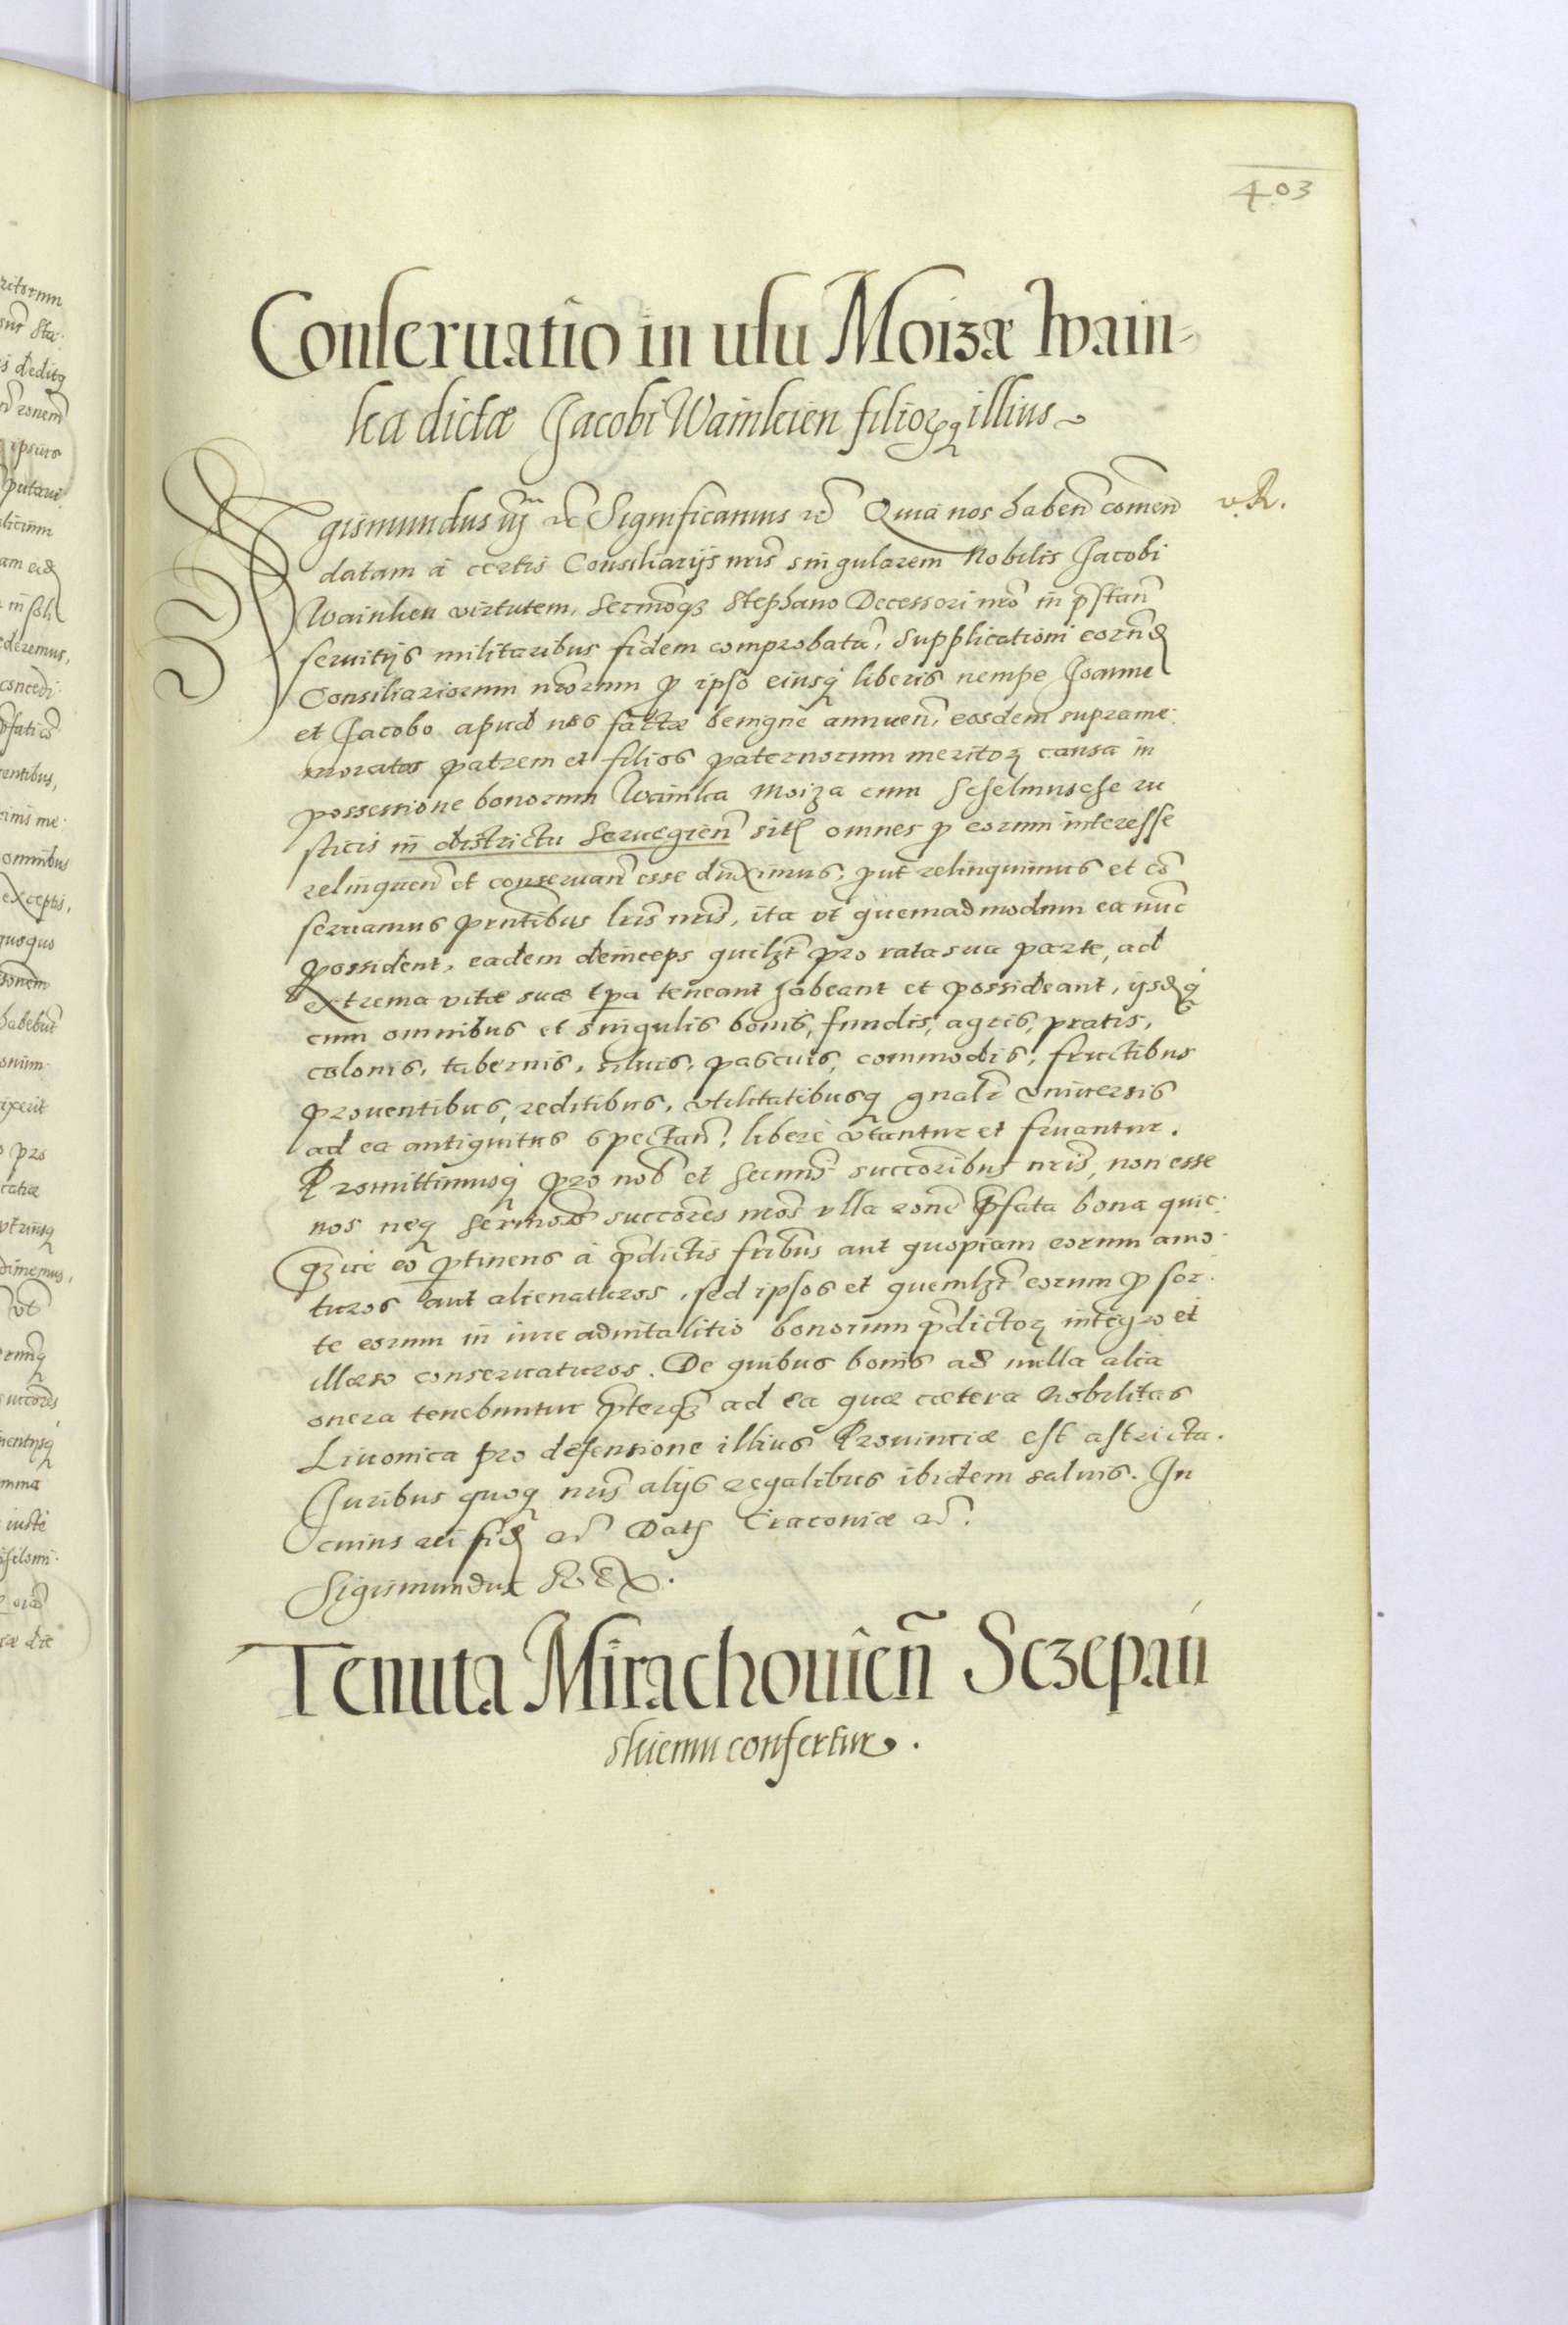 403
Conseruatio in usu Moizæ Wain-
ka dictæ Jacobi Wainkien filiorq illius
v. R.
Sigismundus iij rc Significamus rc Quia nos haben comen
datam à certis Consiliarijs nris singularem Nobilis Jacobi
Wainken virtutem, Sermoqz Stephano Decessori nro in pstan
seruitijs militaribus fidem comprobata, supplicationi eorund
Consiliariorum nrorum p ipso eiusq liberis nempe Joanne
et Jacobo apud nos factæ benigne annuen, eosdem suprame
moratos patrem et filios paternorum meritor causa in
possessione bonorum Wainka Moiza cum Schelmusche ru
sticis in districtu Seruegien sit omnes p eorum interesse
relinquen et conseruan esse duximus, put relinquimus et co
seruamus pntibus lris nris, ita vt quemadmodum ea nuc
possident, eadem deinceps quilzt pro rata sua parte, ad
extrema vitæ suæ tpa teneant habeant et possideant, ijsdq
cum omnibus et singulis bonis, fundis, agris, pratis,
colonis, tabernis, siluis, pascuis, commodis, fructibus
prouentibus, reditibus, vtilitatibusq gnalr vniuersis
ad ea antiquitus spectan, libere vtantur et fruantur.
Promittimusq pro nob et Sermis succoribus nris, non esse
nos neq Sermos succores nros vlla rone pfata bona quic
qz ve eo ptinens à pdictis fribus aut quopiam eorum amo
turos aut alienaturos, sed ipsos et quemlzt eorum p sor
te eorum in iure aduitalitio bonorum pdictor integro et
illæso conseruaturos. De quibus bonis ad nulla alia
onera tenebuntur pterqz ad ea quæ cætera Nobilitas
Liuonica pro defensione illius Prouinciæ est astricta.
Juribus quoq nris alijs regalibus ibidem saluis. In
cuius rei fid rc Dat Cracouiæ rc.
Sigismundus REX.
Tenuta Mirachouien Sczepan
skiemu confertur.